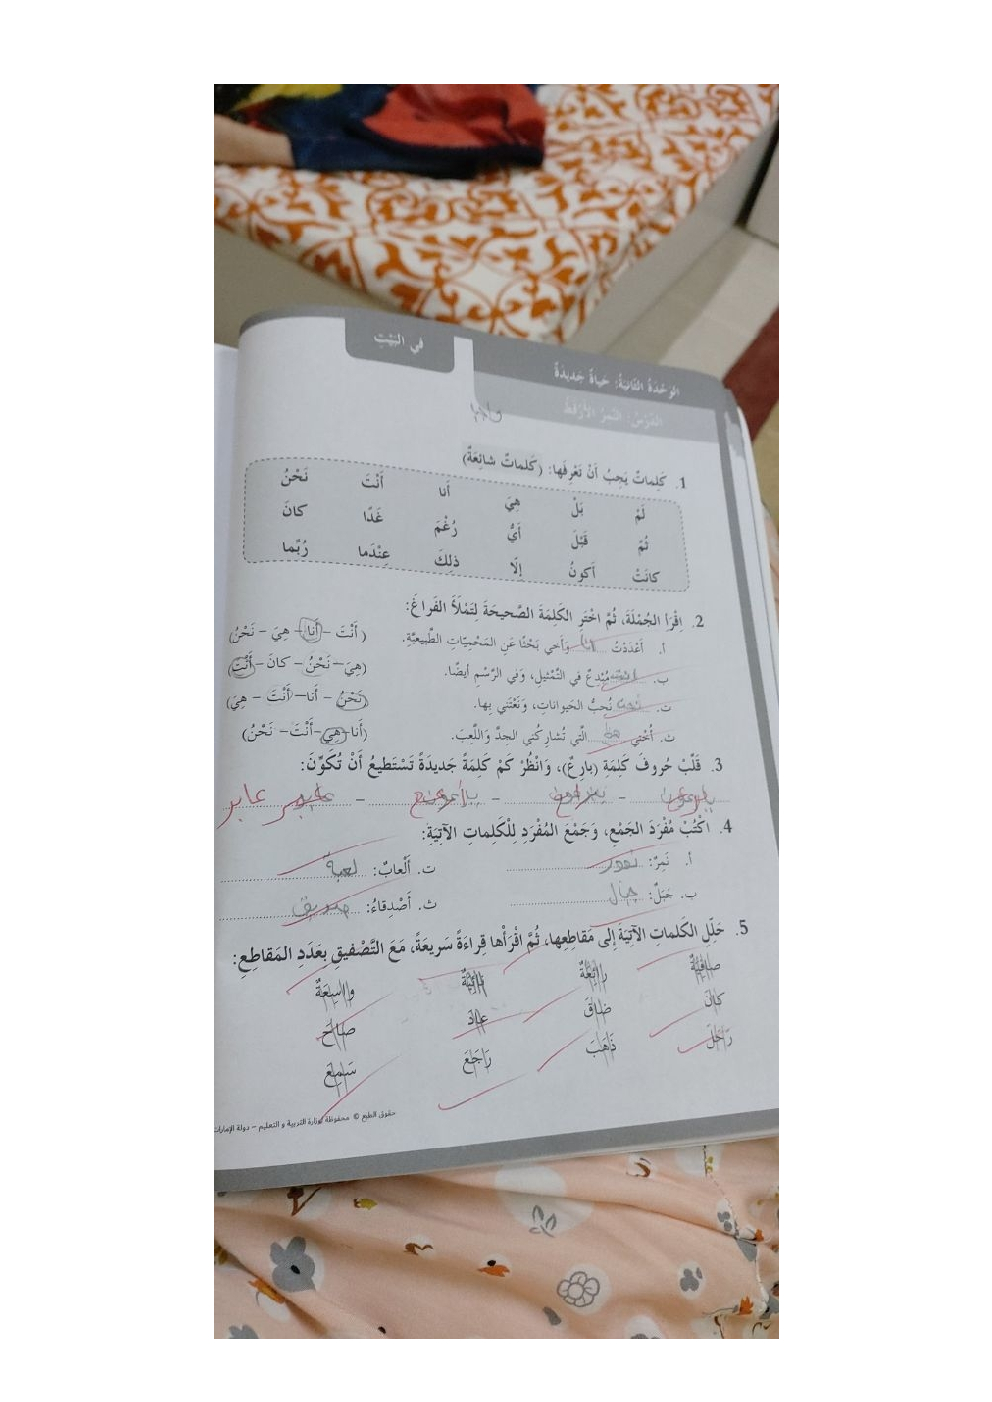 في البيت
الوَحْدَةُ الثّانِيَةُ: حَياةٌ جَديدَةٌ
الدَّرْسُ: النَّمِرُ الأَرْقَطُ
1. كَلِماتٌ يَجِبُ أَنْ نَعْرِفَها: (كَلماتٌ شائِعَةٌ)
لَمْ بَلْ هِيَ أَنا أَنْتَ نَحْنُ
ثُمَّ قَبْلَ أَيُّ رُغْمَ غَدًا كانَ
كانَتْ أَكونُ إِلّا ذلِكَ عِنْدَما رُبَّما
2. اِقْرَأ الجُمْلَةَ، ثُمَّ اخْتَرِ الكَلِمَةَ الصَّحيحَةَ لِتَمْلَأَ الفَراغَ:
أ. أَعْدَدْتُ أنا وَأَخي بَحْثًا عَنِ المَحْمِيّاتِ الطَّبيعيَّةِ. (أَنْتَ – أَنا – هِيَ – نَحْنُ)
ب. أنت مُبْدِعٌ في التَّمْثيلِ، وَفي الرَّسْمِ أيضًا. (هِيَ – نَحْنُ – كانَ – أَنْتَ)
ت. نحن نُحِبُّ الحَيواناتِ، وَنَعْتَني بِها. (نَحْنُ – أنا – أَنْتَ – هِيَ)
ث. أُخْتي هي الّتي تُشارِكُني الجِدَّ وَاللَّعِبَ. (أَنا – هِيَ – أَنْتَ – نَحْنُ)
3. قَلِّبْ حُروفَ كَلِمَةِ (بارِعٌ)، وَانْظُرْ كَمْ كَلِمَةً جَديدَةً تَسْتَطيعُ أَنْ تُكَوِّنَ:
– – – عابر
4. اكْتُبْ مُفْرَدَ الجَمْعِ، وَجَمْعَ المُفْرَدِ لِلْكَلِماتِ الآتِيَةِ:
أ. نَمِرٌ: نمور ت. أَلْعابٌ: لعبة
ب. جَبَلٌ: جبال ث. أَصْدِقاءُ: صديق
5. حَلِّلِ الكَلِماتِ الآتِيَةَ إِلى مَقاطِعِها، ثُمَّ اقْرَأْها قِراءَةً سَريعَةً، مَعَ التَّصْفيقِ بِعَدَدِ المَقاطِعِ:
صافِيَةٌ رائِعَةٌ نائِيَةٌ واسِعَةٌ
كانَ ضاقَ عادَ صاحَ
رَحَلَ ذَهَبَ رَجَعَ سَمِعَ
حقوق الطبع © محفوظة لوزارة التربية و التعليم – دولة الإمارات